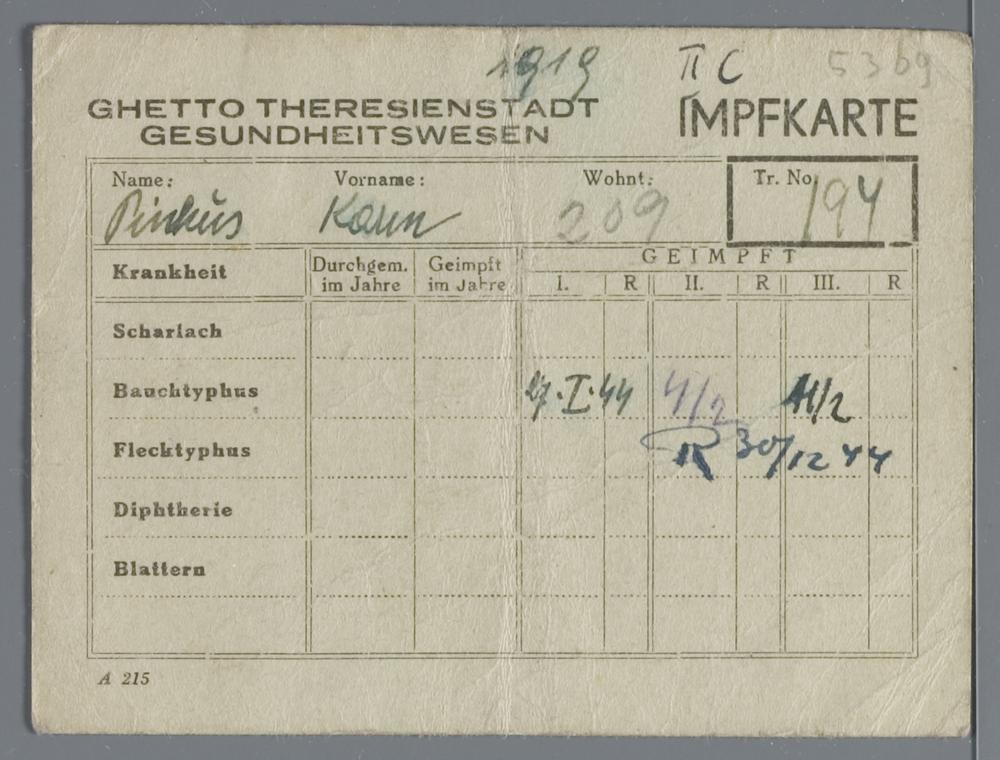 1919 II C 5369
GHETTO THERESIENSTADT
GESUNDHEITSWESEN
IMPFKARTE
Name: Vorname: Wohnt: Tr. No
Pinkus Karin 209 194
Krankheit Durchgem. im Jahre Geimpft im Jahre GEIMPFT
I. R II. R III. R
Scharlach
Bauchtyphus 27.I.44 4/2 11/2
R 30/12 44
Flecktyphus
Diphtherie
Blattern
A 215